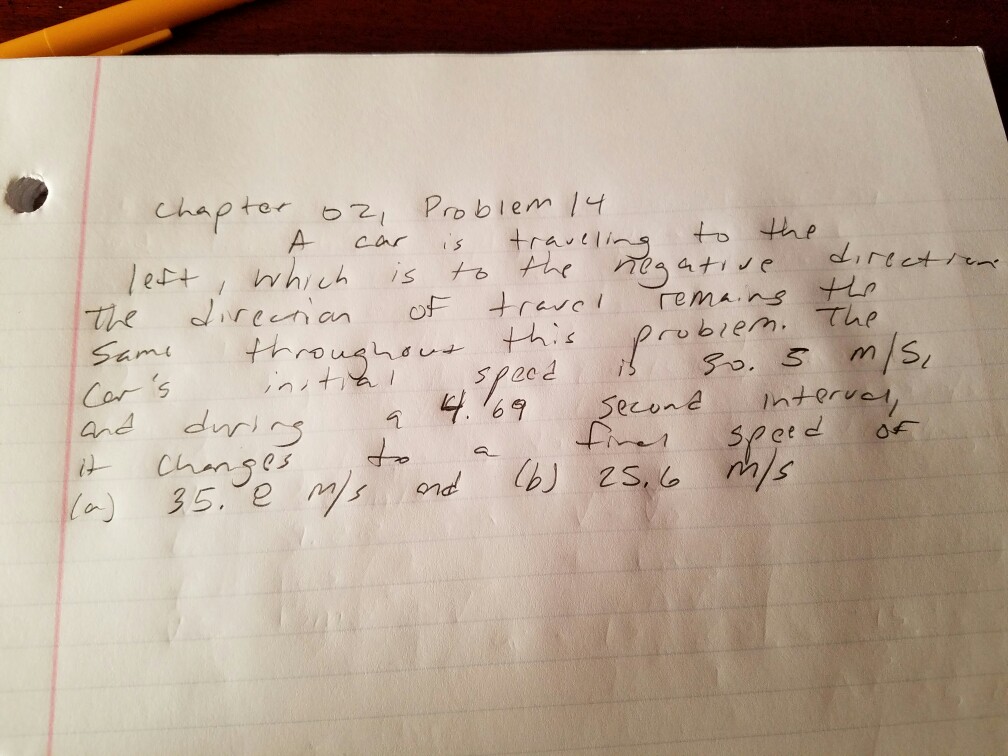 Chapter 02, Problem 14
A car is traveling to the
left, which is to the negative direction
The direction of travel remains the
Same throughout this problem. The
Car's initial speed is 30.5 m/s,
and during a 4.69 second interval,
it changes to a final speed of
(a) 35.2 m/s and (b) 25.6 m/s